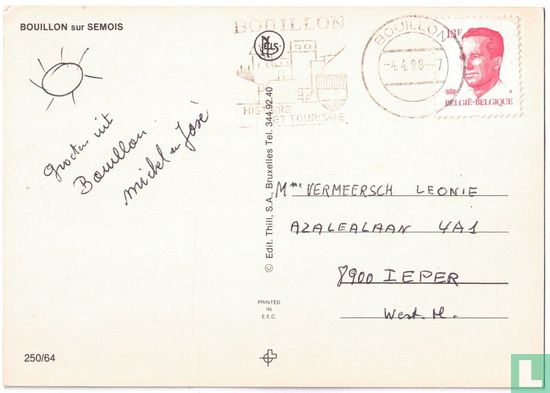 BOUILLON sur SEMOIS
Groeten uit
Bouillon
michel en José
250/64
NELS
© Edit. Thill, S.A., Bruxelles Tel. 344.92.40
PRINTED
IN
E.E.C.
BOUILLON
HISTOIRE
ET TOURISME
BOUILLON
-4.4.89-7
13F
BELGIË-BELGIQUE
Mme VERMEERSCH LEONIE
AZALEALAAN 4A1
8900 IEPER
West. Vl.
LD